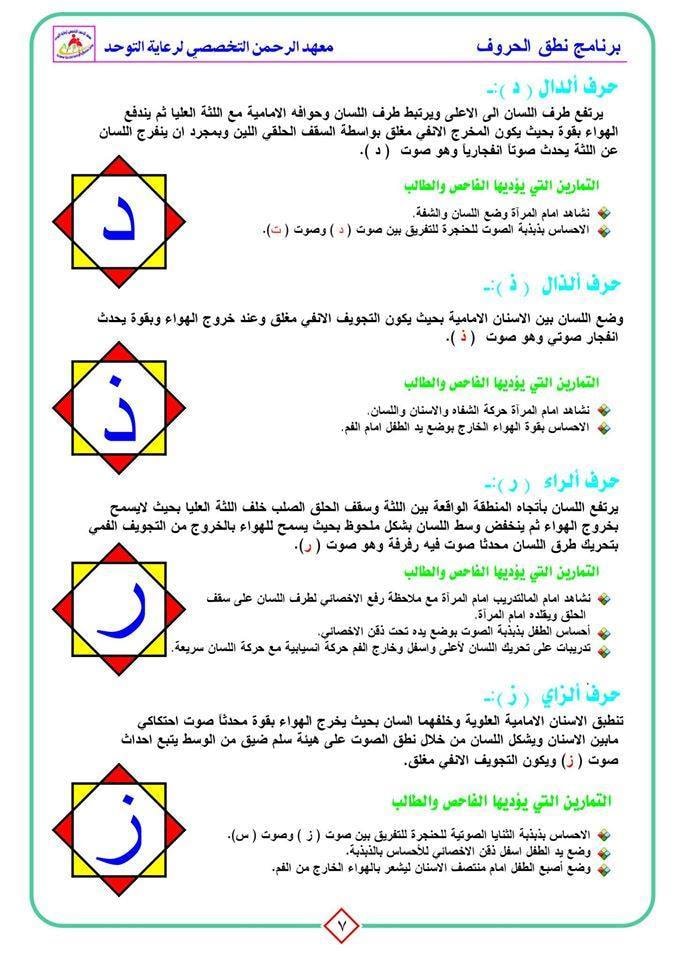 برنامج نطق الحروف
معهد الرحمن التخصصي لرعاية التوحد
حرف ألدال ( د ):ـ
يرتفع طرف اللسان الى الاعلى ويرتبط طرف اللسان وحوافه الامامية مع اللثة العليا ثم يندفع
الهواء بقوة بحيث يكون المخرج الانفي مغلق بواسطة السقف الحلقي اللين وبمجرد ان ينفرج اللسان
عن اللثة يحدث صوتاً انفجارياً وهو صوت ( د ).
التمارين التي يؤديها الفاحص والطالب
نشاهد امام المرآة وضع اللسان والشفة.
الاحساس بذبذبة الصوت للحنجرة للتفريق بين صوت ( د ) وصوت ( ت).
د
حرف ألذال ( ذ ):ـ
وضع اللسان بين الاسنان الامامية بحيث يكون التجويف الانفي مغلق وعند خروج الهواء وبقوة يحدث
انفجار صوتي وهو صوت ( ذ ).
التمارين التي يؤديها الفاحص والطالب
نشاهد امام المرآة حركة الشفاه والاسنان واللسان.
الاحساس بقوة الهواء الخارج بوضع يد الطفل امام الفم.
ذ
حرف ألراء ( ر ):ـ
يرتفع اللسان بأتجاه المنطقة الواقعة بين اللثة وسقف الحلق الصلب خلف اللثة العليا بحيث لايسمح
بخروج الهواء ثم ينخفض وسط اللسان بشكل ملحوظ بحيث يسمح للهواء بالخروج من التجويف الفمي
بتحريك طرق اللسان محدثا صوت فيه رفرفة وهو صوت ( ر).
التمارين التي يؤديها الفاحص والطالب
نشاهد امام المالتدريب امام المرآة مع ملاحظة رفع الاخصائي لطرف اللسان على سقف
الحلق ويقلده امام المرآة.
أحساس الطفل بذبذبة الصوت بوضع يده تحت ذقن الاخصائي.
تدريبات على تحريك اللسان لأعلى واسفل وخارج الفم حركة انسيابية مع حركة اللسان سريعة.
ر
حرف ألزاي ( ز ):ـ
تنطبق الاسنان الامامية العلوية وخلفهما السان بحيث يخرج الهواء بقوة محدثاً صوت احتكاكي
مابين الاسنان ويشكل اللسان من خلال نطق الصوت على هيئة سلم ضيق من الوسط يتبع احداث
صوت ( ز) ويكون التجويف الانفي مغلق.
التمارين التي يؤديها الفاحص والطالب
الاحساس بذبذبة الثنايا الصوتية للحنجرة للتفريق بين صوت ( ز ) وصوت ( س).
وضع يد الطفل اسفل ذقن الاخصائي للأحساس بالذبذبة.
وضع أصبع الطفل امام منتصف الاسنان ليشعر بالهواء الخارج من الفم.
ز
٧